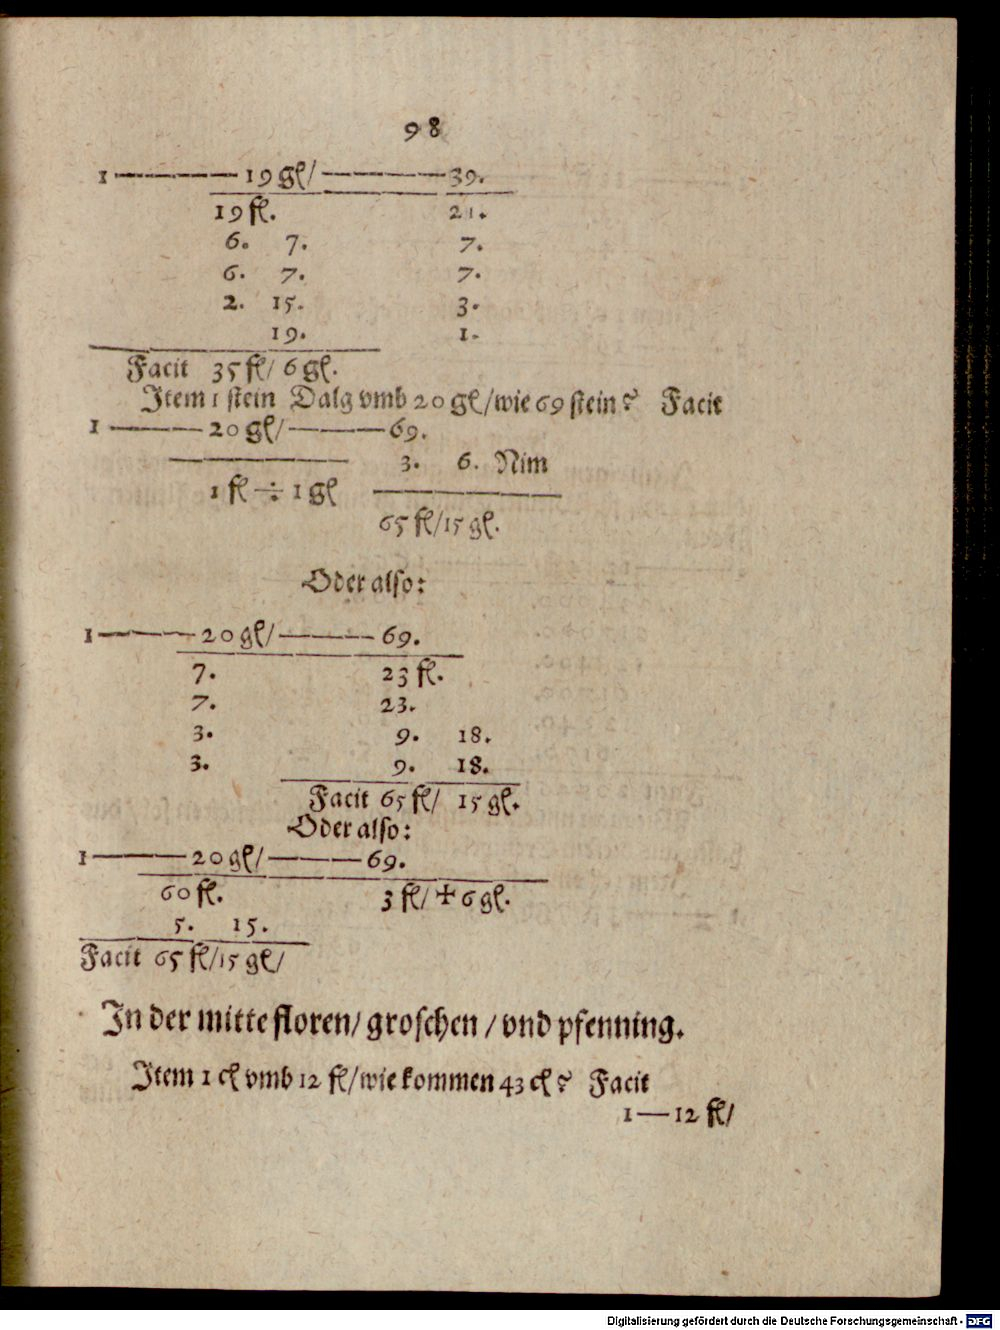 98
1 ——— 19 gl/ ——— 39.
19 fl. 21.
6. 7. 7.
6. 7. 7.
2. 15. 3.
19. 1.
Facit 35 fl/ 6 gl.
Item 1 stein Dalg vmb 20 gl/ wie 69 stein? Facit
1 ——— 20 gl/ ——— 69.
3. 6. Nim
1 fl ÷ 1 gl
65 fl/ 15 gl.
Oder also:
1 ——— 20 gl/ ——— 69.
7. 23 fl.
7. 23.
3. 9. 18.
3. 9. 18.
Facit 65 fl/ 15 gl.
Oder also:
1 ——— 20 gl/ ——— 69.
60 fl. 3 fl/ + 6 gl.
5. 15.
Facit 65 fl/ 15 gl/
In der mitte floren/ groschen / vnd pfenning.
Item 1 cl vmb 12 fl/ wie kommen 43 cl? Facit
1 — 12 fl/
Digitalisierung gefördert durch die Deutsche Forschungsgemeinschaft - DFG